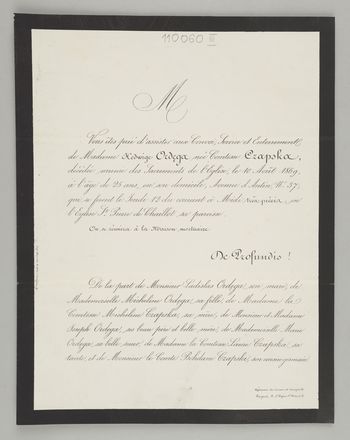 110060 III
M
Vous êtes prié d'assister aux Convoi, Service et Enterrement
de Madame Hedwige Ordęga née Comtesse Czapska,
décédée, munie des Sacrements de l'Eglise, le 10 Avril 1869,
à l'âge de 25 ans, en son domicile, Avenue d'Antin, No. 37;
qui se feront le Lundi 12 du courant à Midi très précis, en
l'Eglise St. Pierre de Chaillot, sa paroisse.
On se réunira à la Maison mortuaire.
De Profundis !
De la part de Monsieur Ladislas Ordęga, son mari, de
Mademoiselle Micheline Ordęga, sa fille, de Madame la
Comtesse Micheline Czapska, sa mère, de Monsieur et Madame
Joseph Ordęga, ses beau père et belle mère, de Mademoiselle Marie
Ordęga, sa belle sœur, de Madame la Comtesse Czapska, sa
tante, et de Monsieur le Comte Bohdan Czapski, son cousin-germain